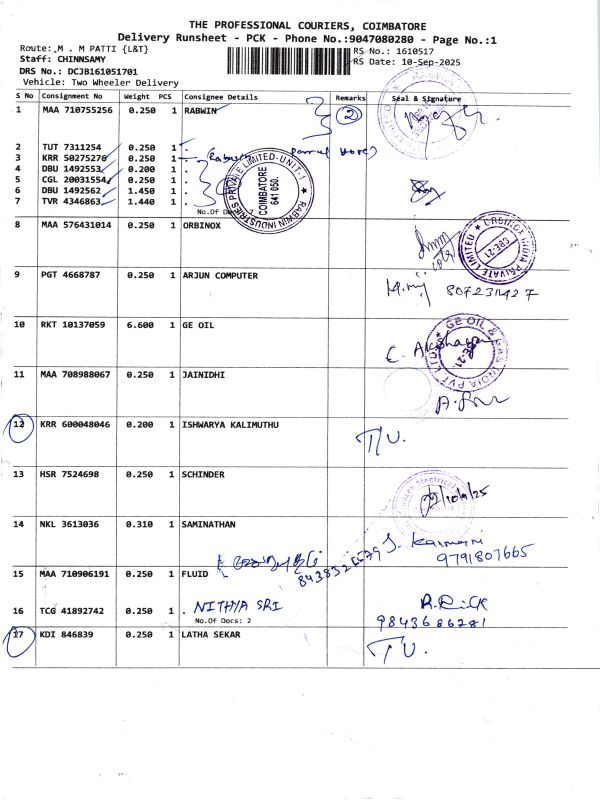 THE PROFESSIONAL COURIERS, COIMBATORE
Delivery Runsheet - PCK - Phone No.:9047080280 - Page No.:1
Route: M . M PATTI {L&T}
RS No.: 1610517
Staff: CHINNSAMY
RS Date: 10-Sep-2025
DRS No.: DCJB161051701
Vehicle: Two Wheeler Delivery
S No Consignment No Weight PCS Consignee Details Remarks Seal & Signature
1 MAA 710755256 0.250 1 RABWIN 2
2 TUT 7311254 0.250 1 .
3 KRR 50275276 0.250 1
4 DBU 1492553 0.200 1 .
5 CGL 20031554 0.250 1 .
6 DBU 1492562 1.450 1 .
7 TVR 4346863 1.440 1 .
No.Of Docs:
RABWIN INDUSTRIES PRIVATE LIMITED-UNIT-1
COIMBATORE
641 050.
8 MAA 576431014 0.250 1 ORBINOX
ORBINOX INDIA PRIVATE LIMITED
CBE-21
9 PGT 4668787 0.250 1 ARJUN COMPUTER
10 RKT 10137059 6.600 1 GE OIL
GE OIL & GAS INDIA PVT LTD
11 MAA 708988067 0.250 1 JAINIDHI
12 KRR 600048046 0.200 1 ISHWARYA KALIMUTHU
13 HSR 7524698 0.250 1 SCHINDER
14 NKL 3613036 0.310 1 SAMINATHAN
9791807665
15 MAA 710906191 0.250 1 FLUID
16 TCG 41892742 0.250 1 . NITHYA SRI
No.Of Docs: 2
9843686281
17 KDI 846839 0.250 1 LATHA SEKAR